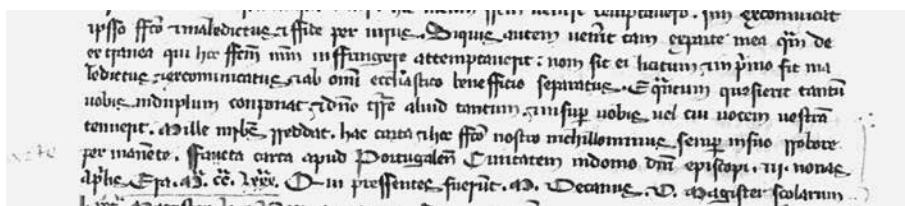 ipsso ffco et maledictus et ffide per iurus. Siquis autem uenit tam exparte mea qm de
extranea qui hoc ffcm mm infringere attemptauerit: nom sit ei licitum et in pimo sit ma
ledictus et excomunicatus et ab omi ecclastico benefficio separatus. E quntum quesierit tantu
uobis induplum conponat et dno tre aliud tantum et insup uobis uel cui uocem uostra
tenuerit. Mille mrbs reddat. hac carta et hoc ffco nostro michillominus semp insuo robore
per maneto. ffacta carta apud Portugalen Ciuitatem indomo dni episcopi. iii. nonas
aplis Era. M. cc. Lxxx. Qui pressentes fuerut. M. Decanus. D. Magister scolarum